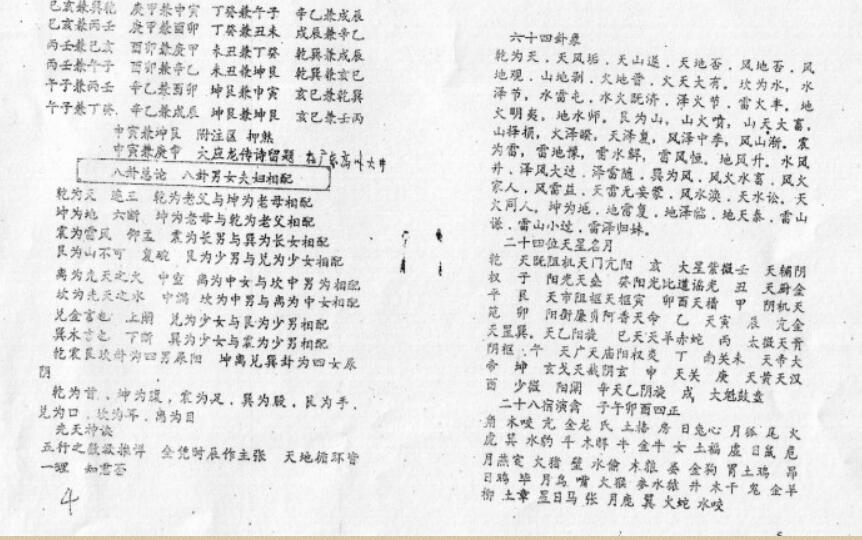 己亥兼巽乾 庚甲兼申寅 丁癸兼午子 辛乙兼戌辰
己亥兼丙壬 庚甲兼酉卯 丁癸兼丑未 戌辰兼辛乙
丙壬兼巳亥 酉卯兼庚甲 未丑兼丁癸 乾巽兼戌辰
丙壬兼午子 酉卯兼辛乙 未丑兼坤艮 乾巽兼亥巳
午子兼丙壬 辛乙兼酉卯 坤艮兼申寅 亥巳兼乾巽
午子兼丁癸 辛乙兼戌辰 坤艮兼坤艮 亥巳兼壬丙
申寅兼坤艮 附注区 抑煞
申寅兼庚甲 大应龙传诗留题 在广东高州大井
八卦总论 八卦男女夫妇相配
乾为天 连三 乾为老父与坤为老母相配
坤为地 六断 坤为老母与乾为老父相配
震为雷风 仰盂 震为长男与巽为长女相配
艮为山不可 复碗 艮为少男与兑为少女相配
离为先天之火 中虚 离为中女与坎中男为相配
坎为先天之水 中满 坎为中男与离为中女相配
兑金言也 上阙 兑为少女与艮为少男相配
巽木言也 下断 巽为少女与震为少男相配
乾震艮坎卦为四男属阳 坤离兑巽卦为四女属
阴
乾为首、坤为腹，震为足，巽为股，艮为手，
兑为口，坎为耳，离为目
先天神诀
五行之数级推详 全凭时辰作主张 天地循环皆
一理
4
六十四卦象
乾为天，天风垢，天山遁，天地否，风地否，风
地观，山地剥，火地晋，火天大有。坎为水，水
泽节，水雷屯，水火既济，泽火节，雷火丰，地
火明夷，地水师。艮为山，山火喷，山天大富，
山择损，火泽睽，天泽复，风泽中季，风山渐。震
为雷，雷地愫，雷水解，雷风恒。地风升，水风
井，泽风大过，泽雷随，巽为风，风火水畜，风火
家人，风雷益，天雷无妄蒙，风水涣，天水讼，天
火同人，坤为地，地雷复，地泽临，地天泰，雷山
谦，雷山小过，雷泽归妹。
二十四位天星名月
乾 天既阻机天门亢阳 亥 大星紫微壬 天辅阴
权 子 阳光天垒 癸阳光比道谣光 丑 天厨金
平 艮 天市阻枢天枢寅 卯酉天棓 甲 阴机天
苑 卯 阳衡廉贞阿香天命 乙 天寅 辰 亢金
天罡巽。天乙阳旋 巳天天羊赤蛇 丙 太微天青
阴枢 午 天广天庙阳权炎 丁 南关未 天帝大
帝 坤 玄戈天钺阴玄 申 天关 庚 天黄天汉
酉 少微 阳阐 辛天乙阴旋 戌 大魁鼓盘
二十八宿演禽 子午卯酉四正
角 木咬 亢 金龙 氐 土狢 房 日兔心 月狐 尾 火
虎 箕 水豹 斗 木獬 牛 金牛 女 土福 虚 日鼠 危
月燕室 火猪 壁 水偷 木狼 娄 金狗 胃土鸡 昴
日鸡 毕 月乌 嘴 火猴 参水猿 井 木干 鬼 金羊
柳 土章 星日马 张 月鹿 翼 火蛇 水咬